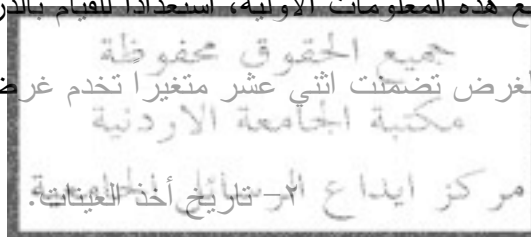 ع هذه المعلومات الاولية، استعدادا للقيام بالدر
جميع الحقوق محفوظة
لغرض تضمنت اثني عشر متغيرا تخدم غرض
مكتبة الجامعة الاردنية
مركز ايداع الرسائل الجامعية
٢- تاريخ أخذ العينات.